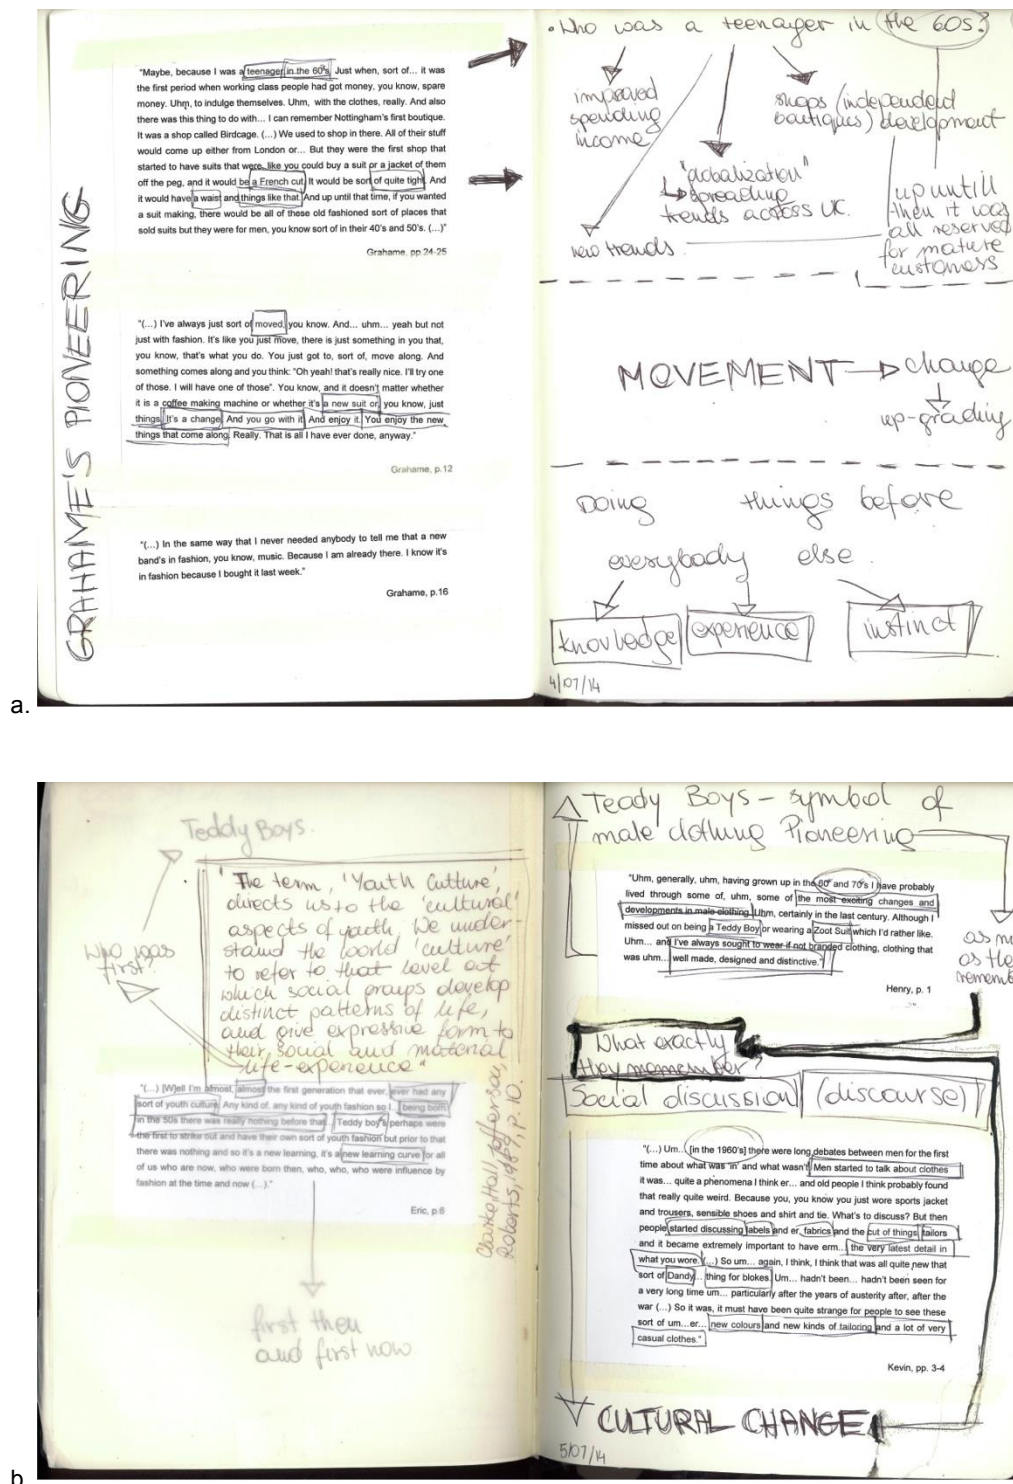 GRAHAME'S PIONEERING
"Maybe, because I was a teenager in the 60's. Just when, sort of... it was
the first period when working class people had got money, you know, spare
money. Uhm, to indulge themselves. Uhm, with the clothes, really. And also
there was this thing to do with... I can remember Nottingham's first boutique.
It was a shop called Birdcage. (...) We used to shop in there. All of their stuff
would come up either from London or... But they were the first shop that
started to have suits that were, like you could buy a suit or a jacket of them
off the peg, and it would be a French cut. It would be sort of quite tight. And
it would have a waist and things like that. And up until that time, if you wanted
a suit making, there would be all of these old fashioned sort of places that
sold suits but they were for men, you know sort of in their 40's and 50's. (...)"
Grahame, pp.24-25
"(...) I've always just sort of moved, you know. And... uhm... yeah but not
just with fashion. It's like you just move, there is just something in you that,
you know, that's what you do. You just got to, sort of, move along. And
something comes along and you think: "Oh yeah! that's really nice. I'll try one
of those. I will have one of those". You know, and it doesn't matter whether
it is a coffee making machine or whether it's a new suit or, you know, just
things. It's a change. And you go with it. And enjoy it. You enjoy the new
things that come along. Really. That is all I have ever done, anyway."
Grahame, p.12
"(...) In the same way that I never needed anybody to tell me that a new
band's in fashion, you know, music. Because I am already there. I know it's
in fashion because I bought it last week."
Grahame, p.16
• Who was a teenager in the 60s?
improved
spending
income
shops (independend
boutiques) development
"globalization"
spreading
trends across UK.
new trends
up untill
then it was
all reserved
for mature
customers
MOVEMENT change
up-grading
Doing things before
everybody else.
knowledge experience instinct
4/07/14
a.
Teddy Boys.
Who was
first?
"The term, 'Youth Culture',
directs us to the 'cultural'
aspects of youth. We under-
stand the world 'culture'
to refer to that level at
which social groups develop
distinct patterns of life,
and give expressive form to
their social and material
life-experience"
Clarke, Hall, Jefferson,
Roberts, p.10.
"(...) [W]ell I'm almost, almost the first generation that ever, ever had any
sort of youth culture. Any kind of, any kind of youth fashion so I... being born
in the 50s there was really nothing before that... Teddy boy's perhaps were
the first to strike out and have their own sort of youth fashion but prior to that
there was nothing and so it's a new learning, it's a new learning curve for all
of us who are now, who were born then, who, who, who were influence by
fashion at the time and now (...)."
Eric, p.6
first then
and first now
Teady Boys - symbol of
male clothing Pioneering
"Uhm, generally, uhm, having grown up in the 60' and 70's I have probably
lived through some of, uhm, some of the most exciting changes and
developments in male clothing. Uhm, certainly in the last century. Although I
missed out on being a Teddy Boy or wearing a Zoot Suit which I'd rather like.
Uhm... and I've always sought to wear if not branded clothing, clothing that
was uhm... well made, designed and distinctive."
Henry, p. 1
as
as the
What exactly
they
Social discussion (discourse)
"(...) Um... [in the 1960's] there were long debates between men for the first
time about what was 'in' and what wasn't. Men started to talk about clothes
it was... quite a phenomena I think er... and old people I think probably found
that really quite weird. Because you, you know you just wore sports jacket
and trousers, sensible shoes and shirt and tie. What's to discuss? But then
people started discussing labels and er, fabrics and the cut of things, tailors
and it became extremely important to have erm... the very latest detail in
what you wore. (...) So um... again, I think, I think that was all quite new that
sort of Dandy... thing for blokes. Um... hadn't been... hadn't been seen for
a very long time um... particularly after the years of austerity after, after the
war (...) So it was, it must have been quite strange for people to see these
sort of um...er... new colours and new kinds of tailoring and a lot of very
casual clothes."
Kevin, pp. 3-4
CULTURAL CHANGE
5/07/14
b.